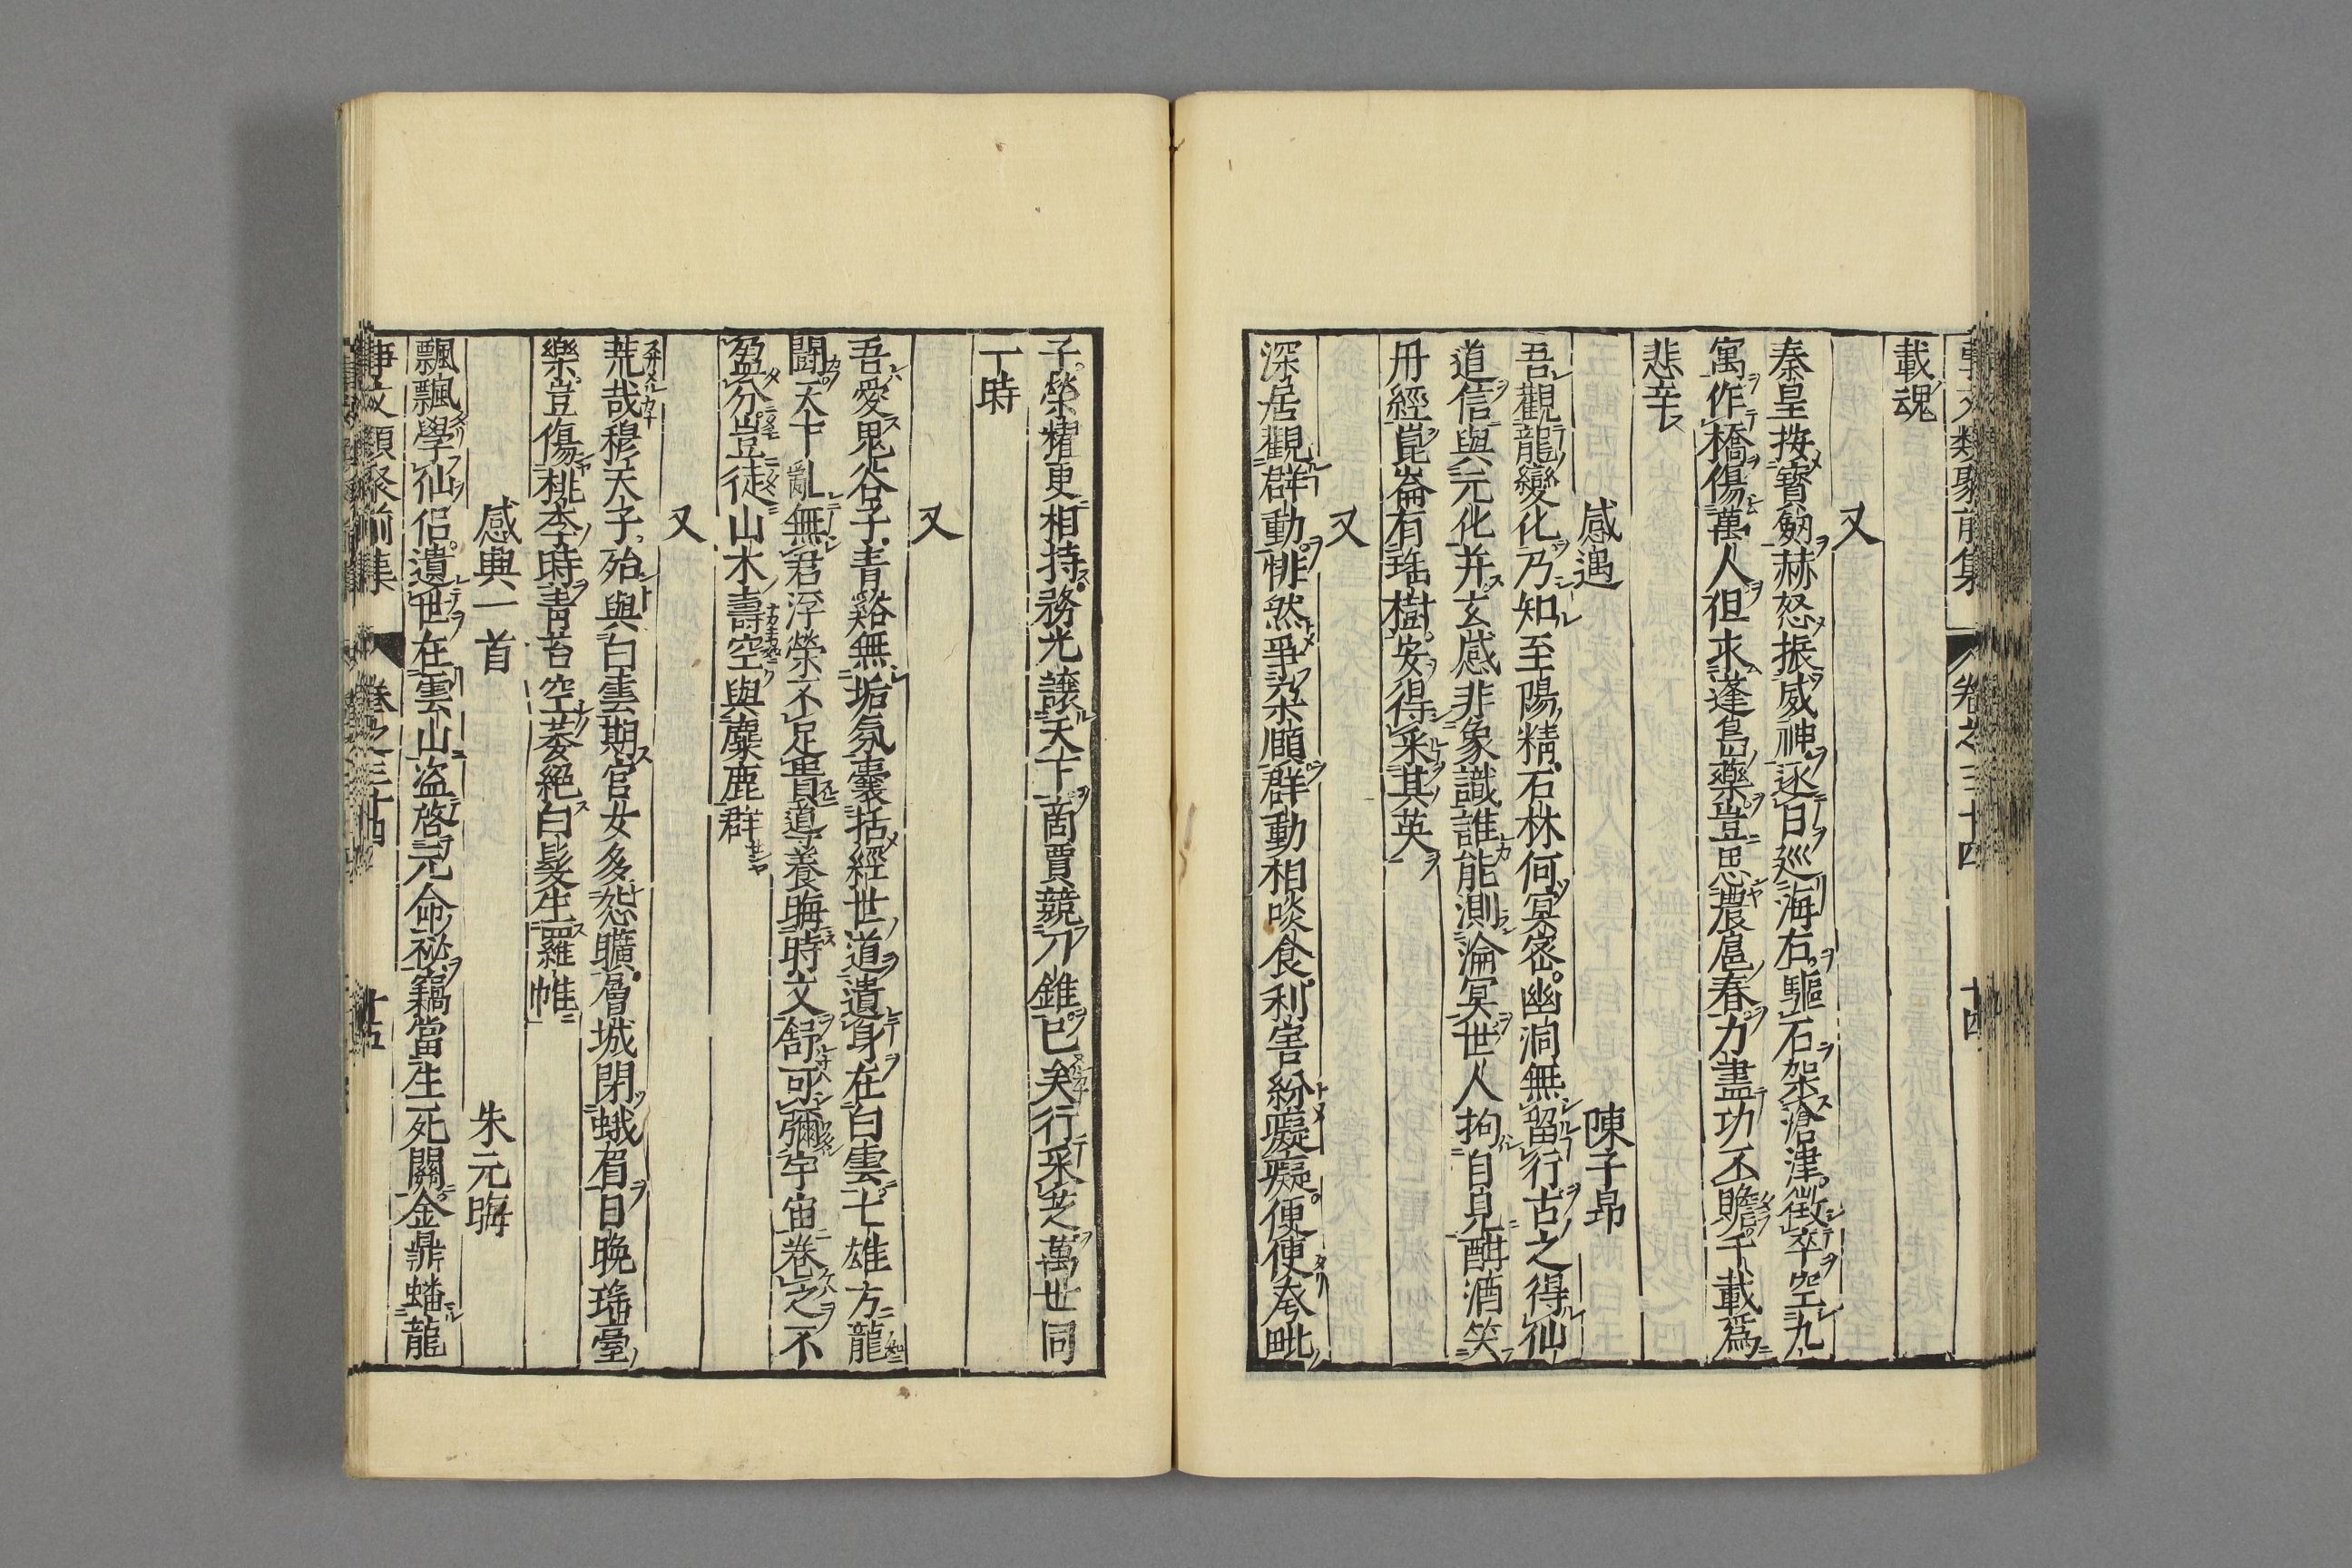 事文類聚前集 卷之三十四 十四
載魂
又
秦皇按寶劔赫怒振威神逐日巡海右驅石架滄津徵卒空九
寓作橋傷萬人但求蓬島藥豈思農扈春力盡功不贍千載爲
悲辛
感遇 陳子昻
吾觀龍變化乃知至陽精石林何冥密幽洞無留行古之得仙
道信與元化并玄感非象識誰能測淪冥世人拘自見酣酒笑
丹經崑崙有瑤樹安得采其英
又
深居觀群動悱然爭朶頤群動相啖食利害紛㘈㘈便便夸毗
子榮耀更相持務光讓天下商賈競刀錐已矣行采芝萬世同
一時
又
吾愛鬼谷子青谿無垢氛囊括經世道遺身在白雲七雄方龍
鬪天下亂無君浮榮不足貴道养晦時文舒可彌宇宙卷之不
盈分豈徒山木壽空與麋鹿群
又
荒哉穆天子殆與白雲期宮女多怨曠層城閉蛾眉日晚瑤臺
樂豈傷桃李時靑苔空萎絕白髮生羅帷
感興一首 朱元晦
飄飄學仙侶遺世在雲山盗啓元命祕竊當生死關金鼎蟠龍
事文類聚前集 卷之三十四 十五